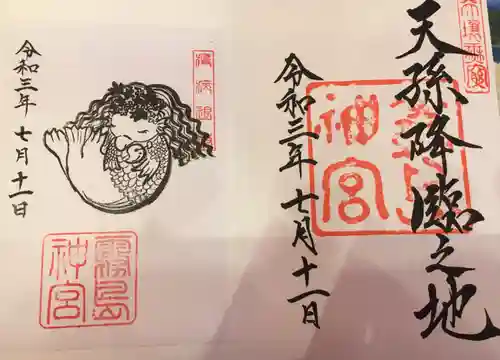 天孫降臨之地
霧島神宮
令和三年七月十一日
霧島神宮
令和三年七月十一日